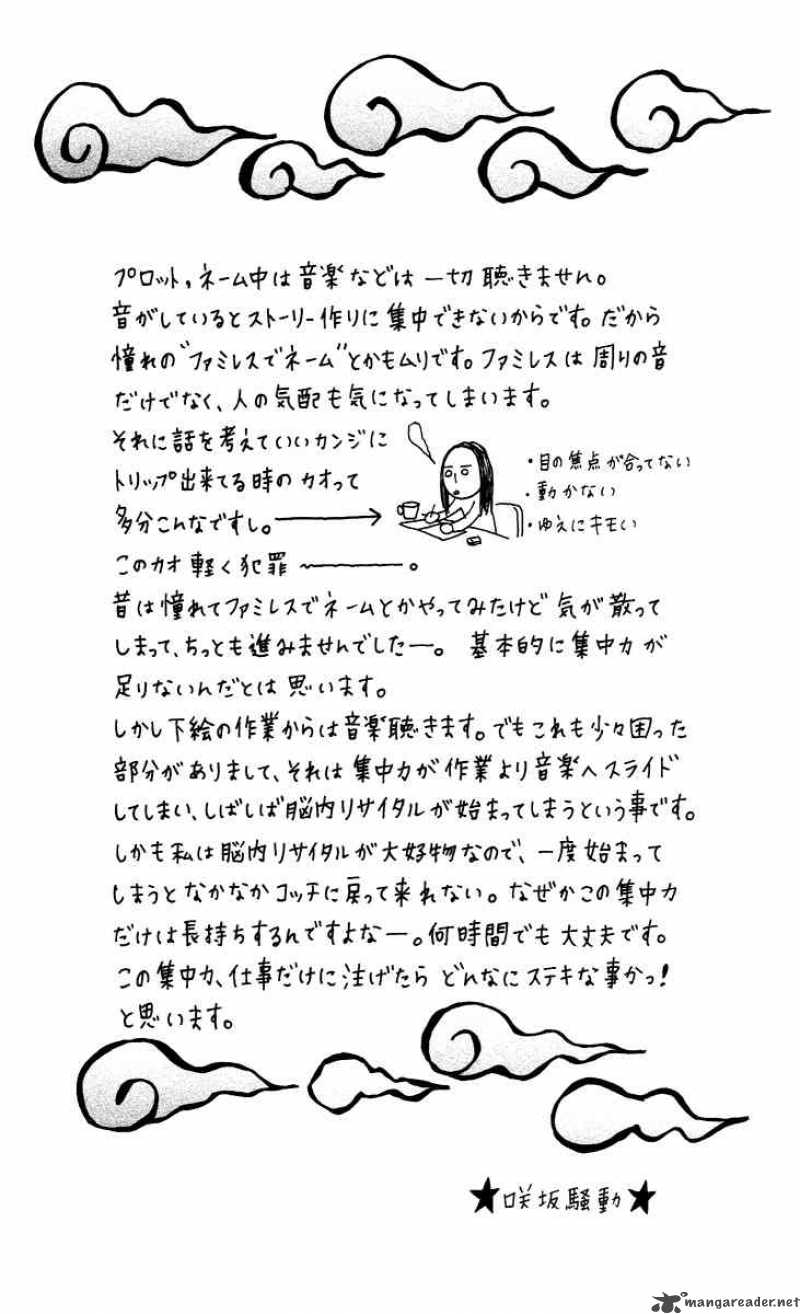 プロット,ネーム中は音楽などは一切聴きません。
音がしているとストーリー作りに集中できないからです。だから
憧れの"ファミレスでネーム"とかもムリです。ファミレスは周りの音
だけでなく、人の気配も気になってしまいます。
それに話を考えていいカンジに
トリップ出来てる時のカオって
多分こんなですし。
・目の焦点が合ってない
・動かない
・ゆえにキモい
このカオ軽く犯罪――。
昔は憧れてファミレスでネームとかやってみたけど気が散って
しまって、ちっとも進みませんでしたー。基本的に集中力が
足りないんだとは思います。
しかし下絵の作業からは音楽聴きます。でもこれも少々困った
部分がありまして、それは集中力が作業より音楽へスライド
してしまい、しばしば脳内リサイタルが始まってしまうという事です。
しかも私は脳内リサイタルが大好物なので、一度始まって
しまうとなかなかコッチに戻って来れない。なぜかこの集中力
だけは長持ちするんですよなー。何時間でも大丈夫です。
この集中力、仕事だけに注げたらどんなにステキな事かっ!
と思います。
★咲坂騒動★
mangareader.net